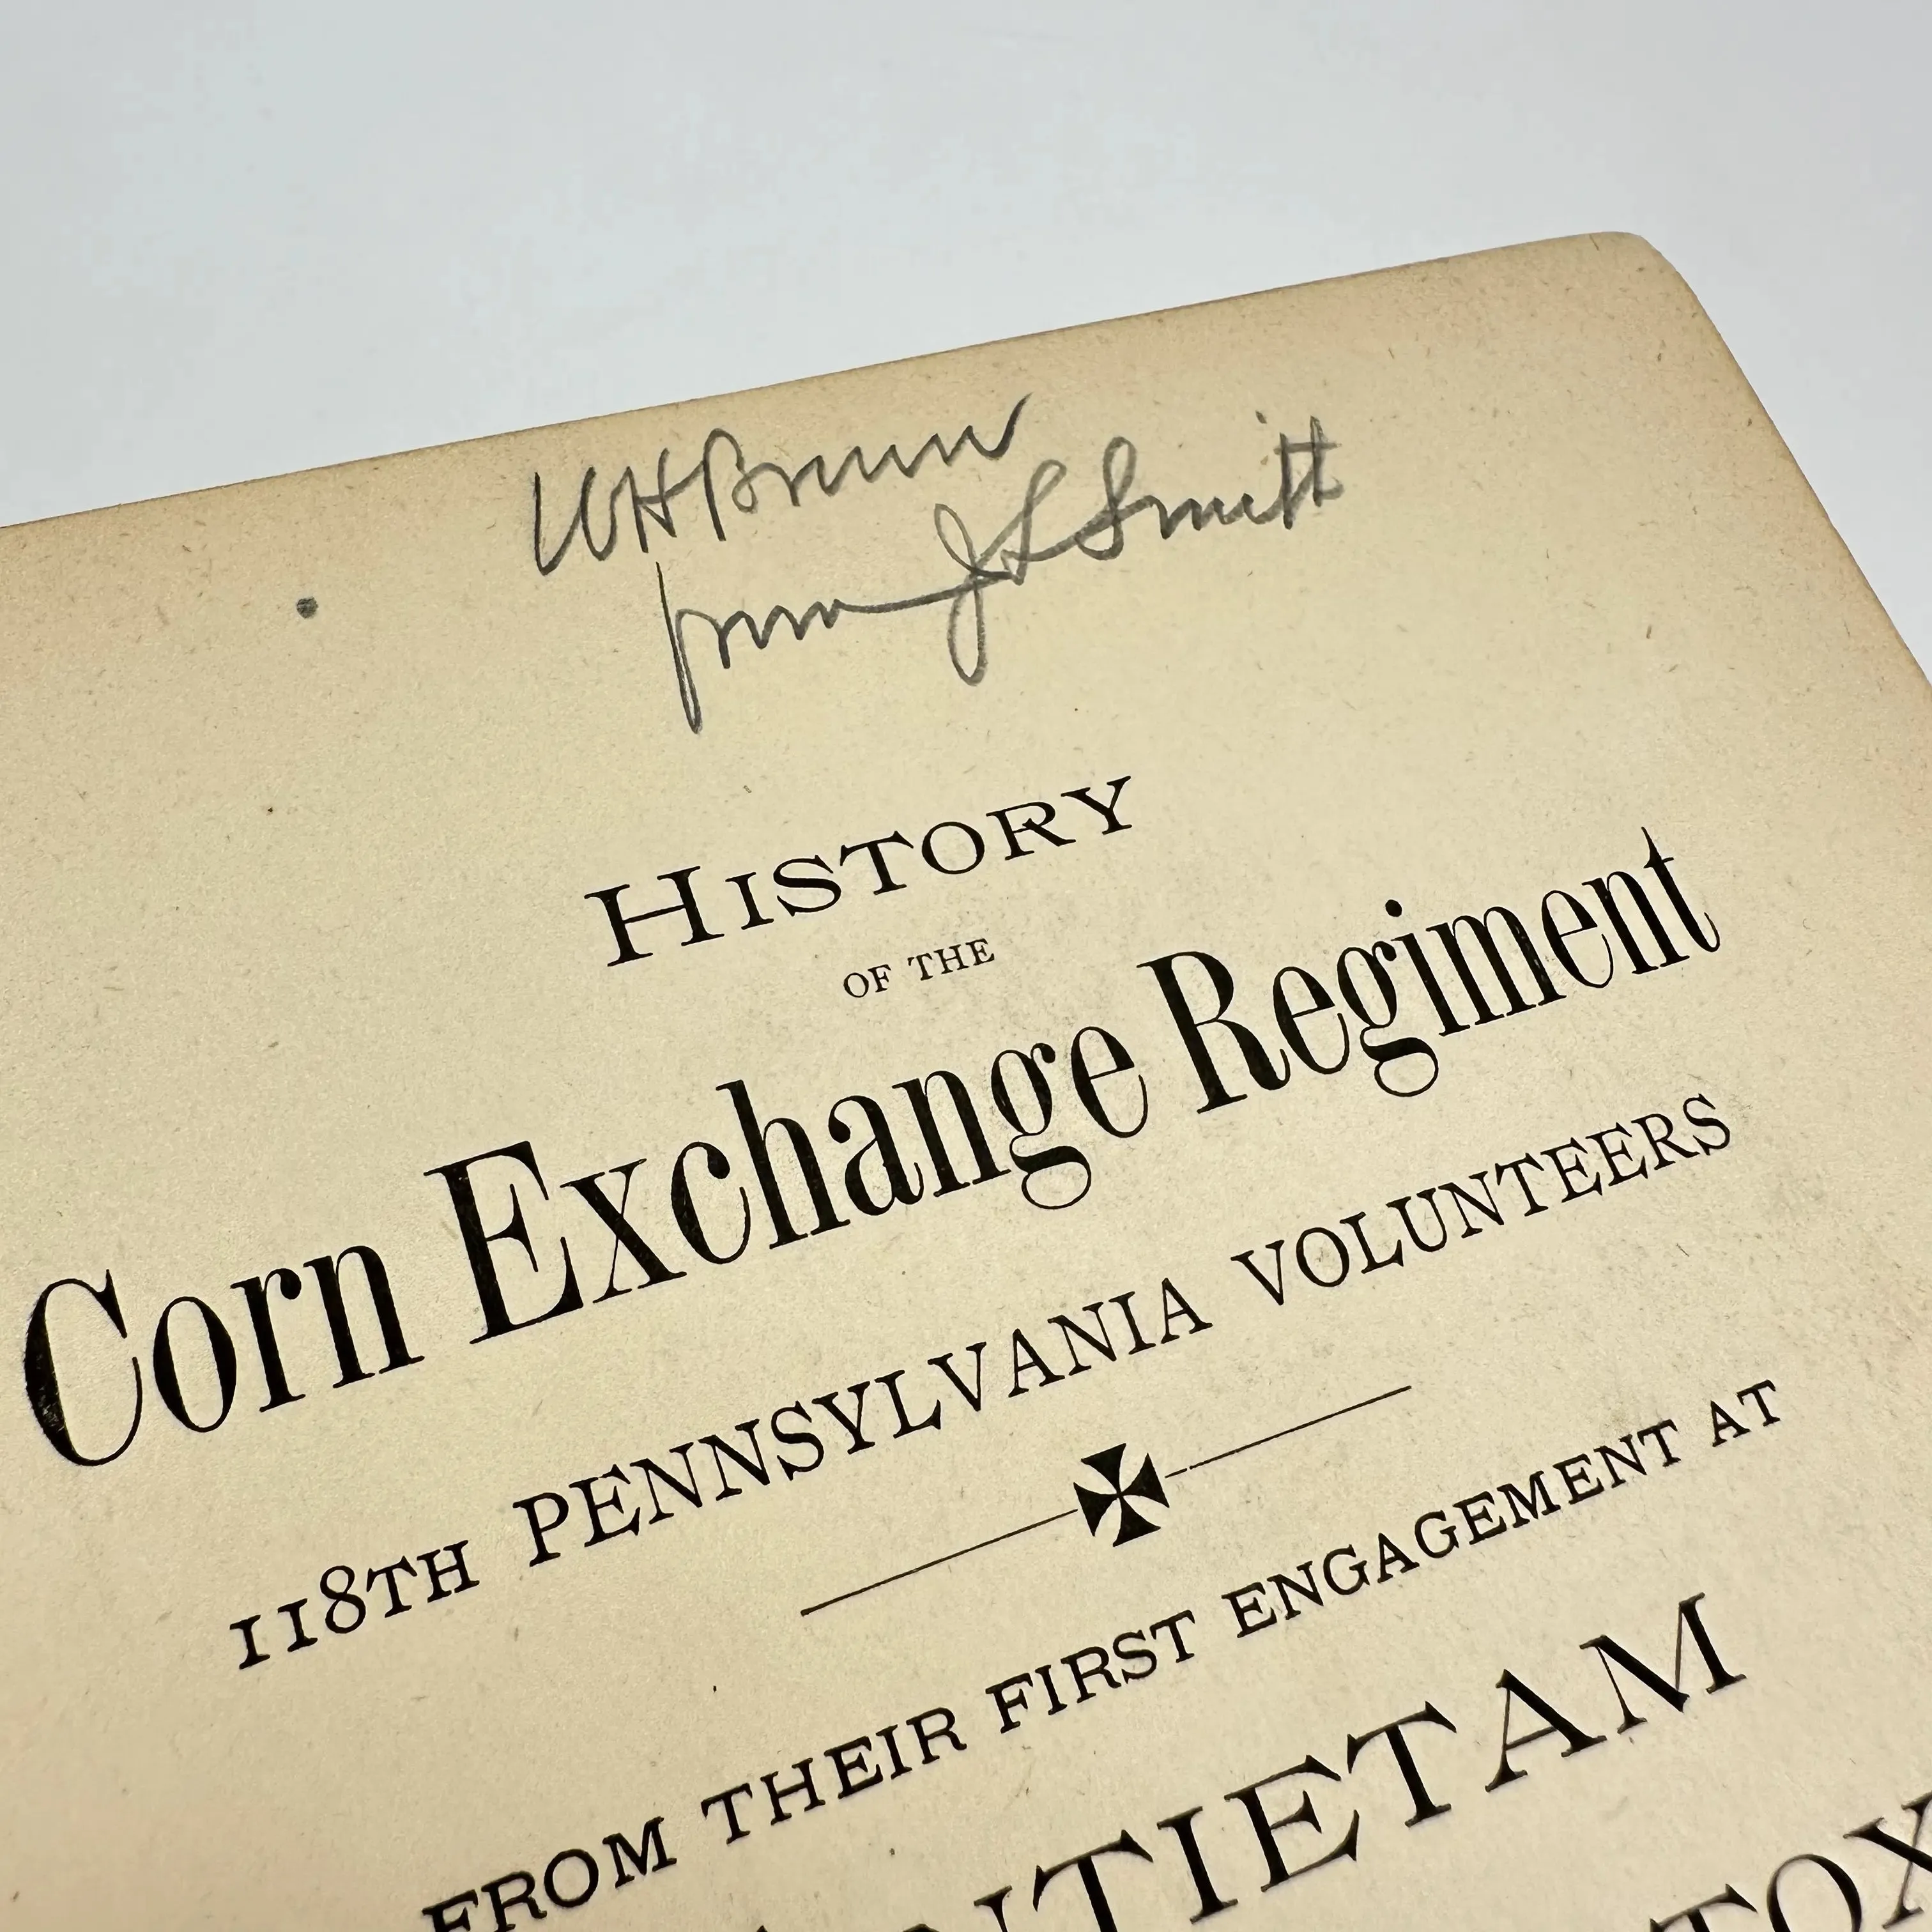 WH Brown
from J L Smith
HISTORY
OF THE
Corn Exchange Regiment
118TH PENNSYLVANIA VOLUNTEERS
FROM THEIR FIRST ENGAGEMENT AT
NTIETAM
TOX